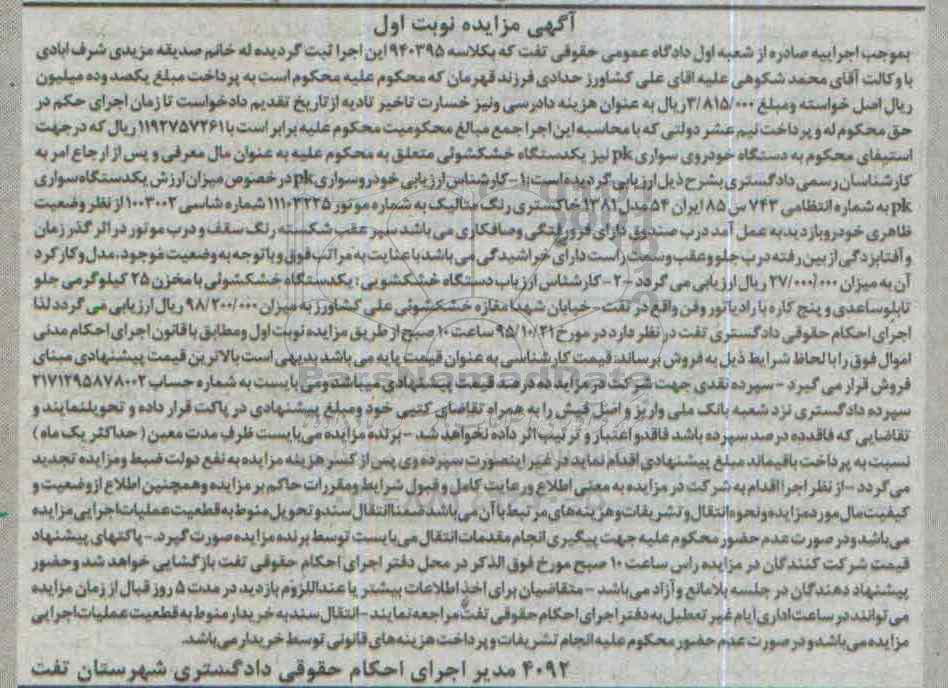 آگهی مزایده نوبت اول
بموجب اجراییه صادره از شعبه اول دادگاه عمومی حقوقی تفت که بکلاسه ۹۴۰۳۹۵ این اجرا ثبت گردیده له خانم صدیقه مزیدی شرف ابادی
با وکالت آقای محمد شکوهی علیه اقای علی کشاورز حدادی فرزند قهرمان که محکوم علیه محکوم است به پرداخت مبلغ یکصد وده میلیون
ریال اصل خواسته ومبلغ ۳/۸۱۵/۰۰۰ ریال به عنوان هزینه دادرسی ونیز خسارت تاخیر تادیه از تاریخ تقدیم دادخواست تا زمان اجرای حکم در
حق محکوم له و پرداخت نیم عشر دولتی که با محاسبه این اجرا جمع مبالغ محکومیت محکوم علیه برابر است با ۱۱۹۲۷۵۷۲۶۱ ریال که در جهت
استیفای محکوم به دستگاه خودروی سواری pk نیز یکدستگاه خشکشوئی متعلق به محکوم علیه به عنوان مال معرفی و پس از ارجاع امر به
کارشناسان رسمی دادگستری بشرح ذیل ارزیابی گردیده است: ۱- کارشناس ارزیابی خودرو سواری pk در خصوص میزان ارزش یکدستگاه سواری
pk به شماره انتظامی ۷۴۳ س ۸۵ ایران ۵۴ مدل ۱۳۸۱ خاکستری رنگ متالیک به شماره موتور ۱۱۱۰۳۲۲۵ شماره شاسی ۱۰۰۳۰۰۲ از نظر وضعیت
ظاهری خودرو بازدید به عمل آمد درب صندوق دارای فرورفتگی وصافکاری می باشد سپر عقب شکسته رنگ سقف و درب موتور در اثر گذر زمان
و آفتابزدگی از بین رفته درب جلو و عقب وسمت راست دارای خراشیدگی می باشد با عنایت به مراتب فوق و با توجه به وضعیت موجود، مدل و کارکرد
آن به میزان ۲۷/۰۰۰/۰۰۰ ریال ارزیابی می گردد -۲- کارشناس ارزیاب دستگاه خشکشویی: یکدستگاه خشکشوئی با مخزن ۲۵ کیلوگرمی جلو
تابلو ساعدی و پنج کاره با رادیاتور وفن واقع در تفت - خیابان شهدا مغازه خشکشوئی علی کشاورز به میزان ۹۸/۲۰۰/۰۰۰ ریال ارزیابی می گردد لذا
اجرای احکام حقوقی دادگستری تفت در نظر دارد در مورخ ۹۵/۱۰/۲۱ ساعت ۱۰ صبح از طریق مزایده نوبت اول ومطابق با قانون اجرای احکام مدنی
اموال فوق را با لحاظ شرایط ذیل به فروش برساند: قیمت کارشناسی به عنوان قیمت پایه می باشد بدیهی است بالاترین قیمت پیشنهادی مبنای
فروش قرار می گیرد - سپرده نقدی جهت شرکت در مزایده ده درصد قیمت پیشنهادی میباشد ومی بایست به شماره حساب ۲۱۷۱۲۹۵۸۷۸۰۰۲
سپرده دادگستری نزد شعبه بانک ملی واریز و اصل فیش را به همراه تقاضای کتبی خود ومبلغ پیشنهادی در پاکت قرار داده و تحویل نمایند و
تقاضایی که فاقد ده درصد سپرده باشد فاقد و اعتبار و ترتیب اثر داده نخواهد شد - برنده مزایده می بایست ظرف مدت معین (حداکثر یک ماه)
نسبت به پرداخت باقیماند مبلغ پیشنهادی اقدام نماید در غیر اینصورت سپرده وی پس از کسر هزینه مزایده به نفع دولت ضبط ومزایده تجدید
می گردد - از نظر اجرا اقدام به شرکت در مزایده به معنی اطلاع و رعایت کامل و قبول شرایط ومقررات حاکم بر مزایده وهمچنین اطلاع از وضعیت و
کیفیت مال مورد مزایده ونحوه انتقال و تشریفات وهزینه های مرتبط با آن می باشد ضمنا انتقال سند و تحویل منوط به قطعیت عملیات اجرایی مزایده
می باشد ودر صورت عدم حضور محکوم علیه جهت پیگیری انجام مقدمات انتقال می بایست توسط برنده مزایده صورت گیرد. - پاکتهای پیشنهاد
قیمت شرکت کنندگان در مزایده راس ساعت ۱۰ صبح مورخ فوق الذکر در محل دفتر اجرای احکام حقوقی تفت بازگشایی خواهد شد وحضور
پیشنهاد دهندگان در جلسه بلامانع و آزاد می باشد - متقاضیان برای اخذ اطلاعات بیشتر یا عنداللزوم بازدید در مدت ۵ روز قبل از زمان مزایده
می توانند در ساعت اداری ایام غیر تعطیل به دفتر اجرای احکام حقوقی تفت مراجعه نمایند - انتقال سند به خریدار منوط به قطعیت عملیات اجرایی
مزایده می باشد ودر صورت عدم حضور محکوم علیه انجام تشریفات و پرداخت هزینه های قانونی توسط خریدار می باشد.
۴۰۹۲ مدیر اجرای احکام حقوقی دادگستری شهرستان تفت
ParsNamadData